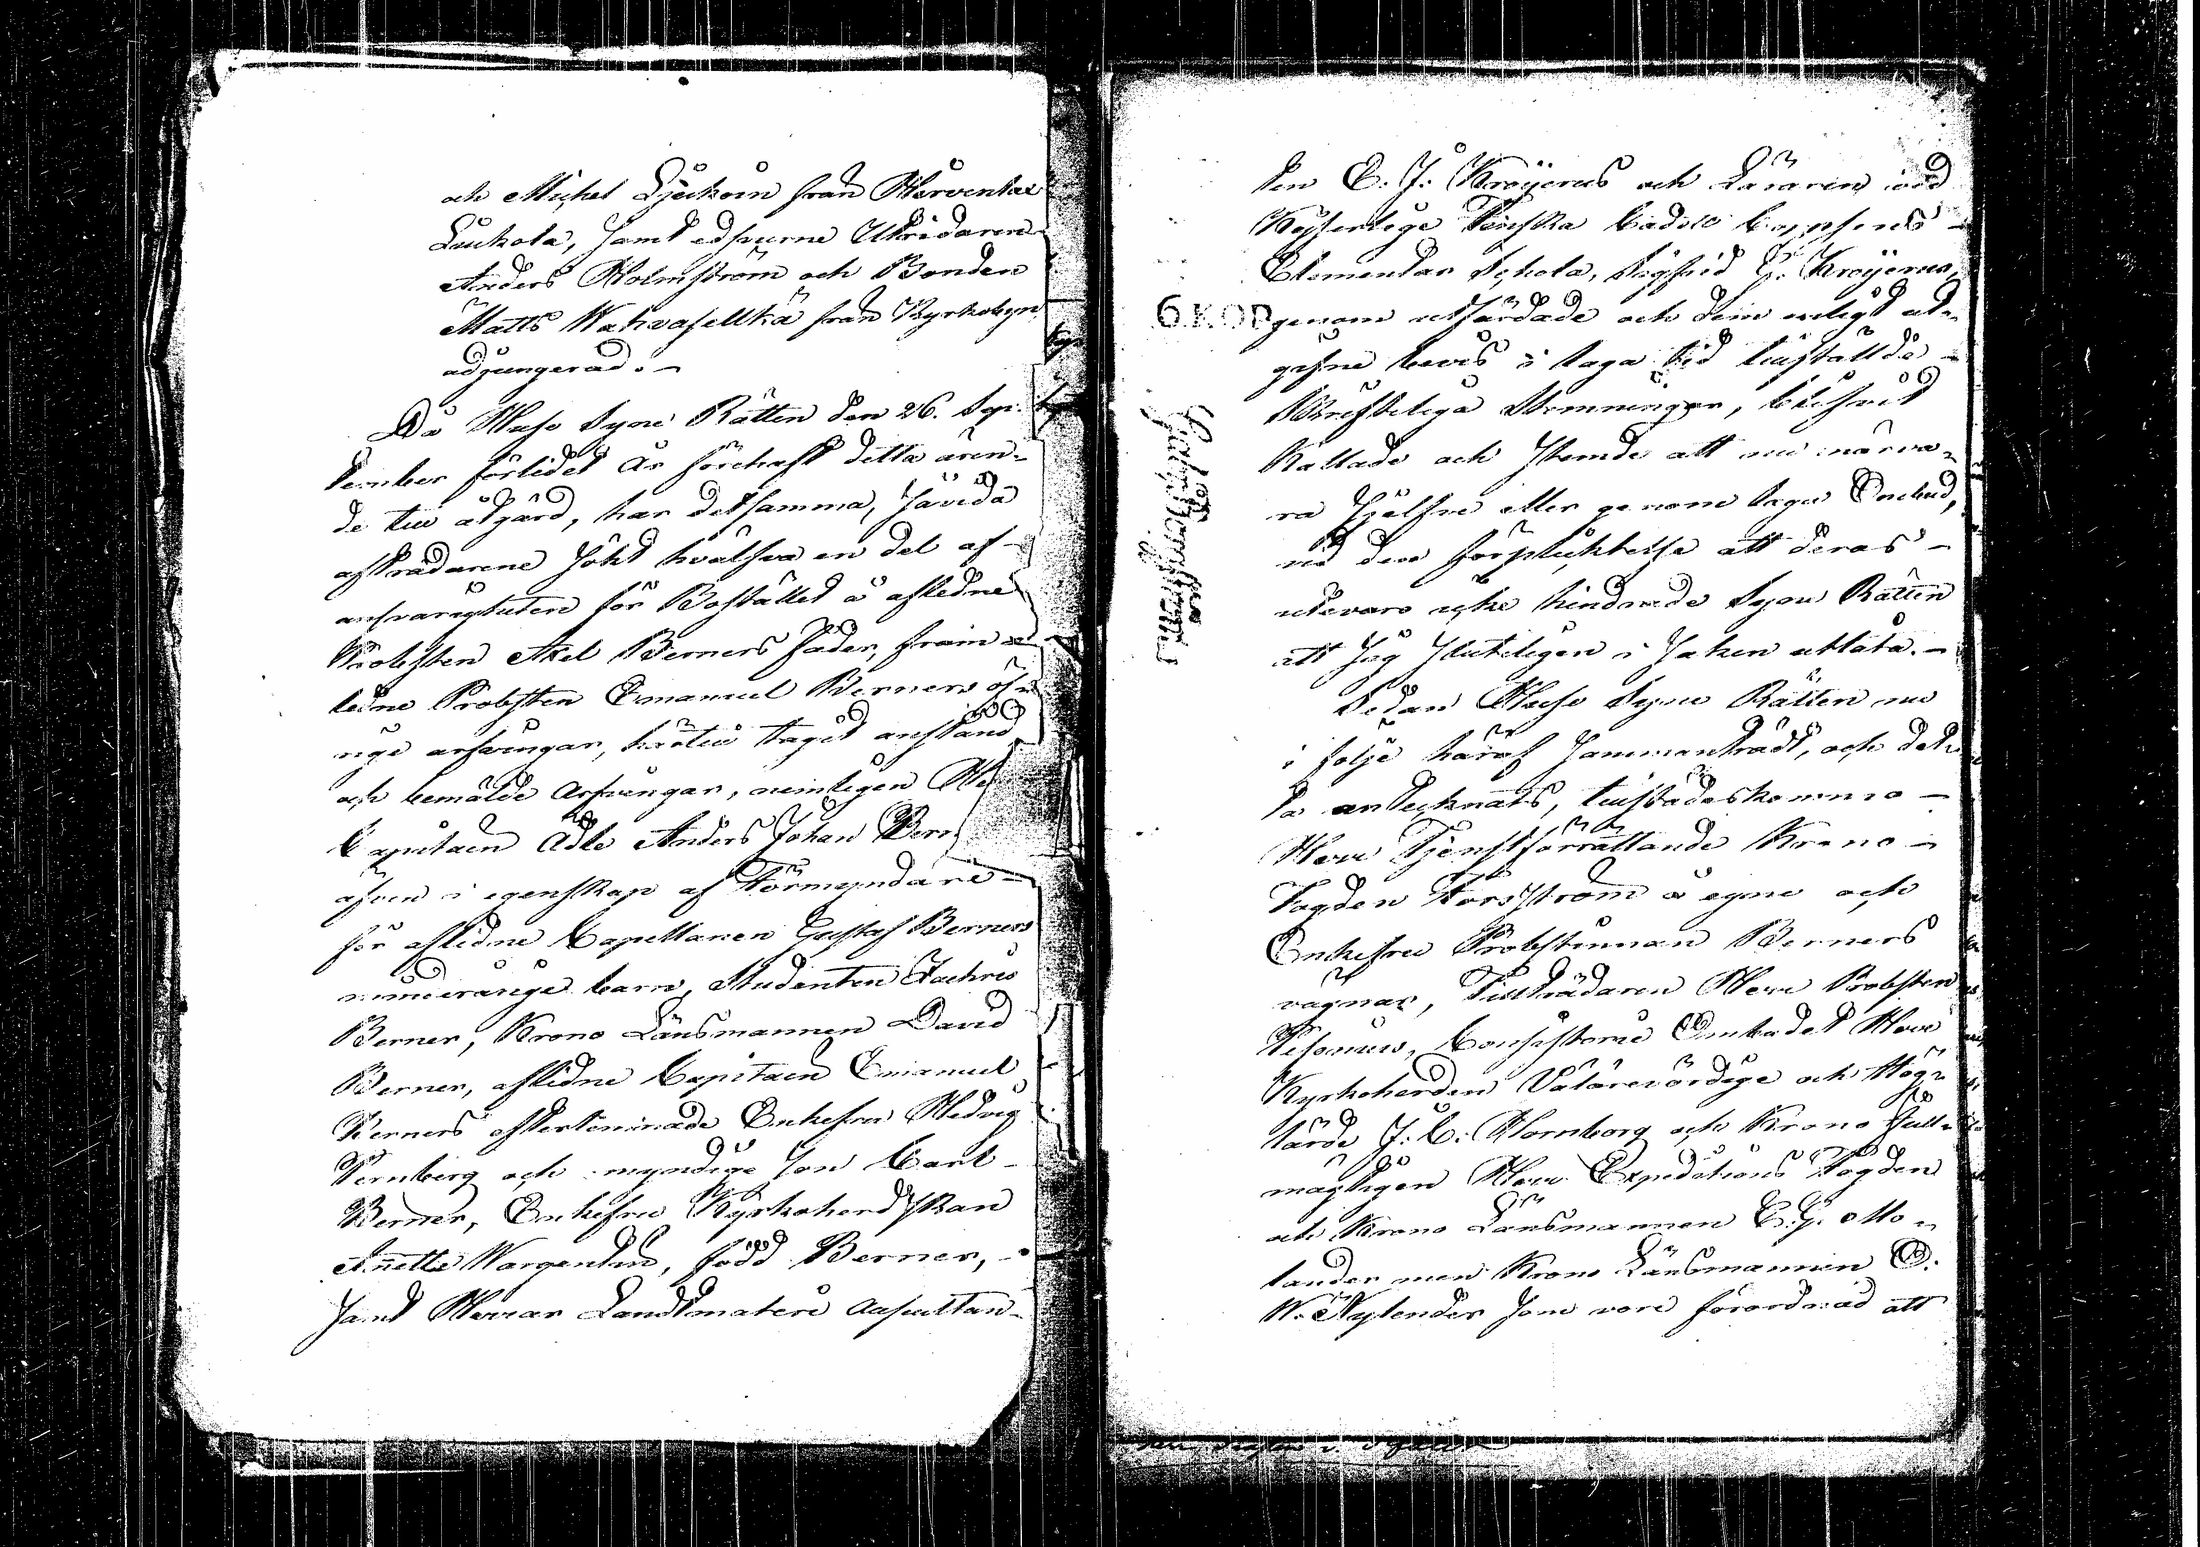 och Michel Ljeikoin från Wärventaus
Luukola, samt edsvurne Utridaren
Anders Holmström och Bonden
Matts Wahvaselkä från Kyrkobyn
adjungerad. –
Då Husesyne Rätten den 26. Sep-
tember förlidet År förehaft detta ären-
de till åtgärd, har detsamma, såvida
afträdarene sökt hvälfva en del af
ansvarigheten för Bostället å aflidne
Probsten Axel Berners fader, fram-
ledne Probsten Emanuel Berners öf-
rige arfvingar, härtill tagit anstånd
och bemälde Arfvingar, nemligen He
Capitaen Ädle Anders Johan Bern
äfven i egenskap af Förmyndare
för aflidne Capellanen Gustaf Berners
minderårige barn, Studenten Zachris
Berner, Krono Länsmannen David
Berner, aflidne Capitaen Emanuel
Berners efterlemnade Enkefru Hedvig
Fernberg och myndige Son Carl
Berner, Enkefru Kyrkoherdskan
Annette Wargentin, född Berner, –
samt Herrar Landtmäteri Auscultan-
ten E. J. Kröijerus och Läraren vid
Kejserlige Finska Cadett Corpsens
Elementar Schola, Sigfrid G. Kröijerus,
6 KOP
genom utfärdade och dem enligt ut-
gifne bevis i laga tid tillställde
Skrifteliga Stemningar, blifvit
Kallade och stemde att nu närva-
ra sjelfve eller genom laga Ombud,
vid den förpliktelse att deras
utevaro icke hindrade Syne Rätten
att sig slutligen i saken utlåta. –
Sedan Husesyne Rätten nu
i följe häraf sammanträdt, och det-
ta antecknats, tillstädeskommo
Herr Tjenstförrättande Krono
Fogden Forsström å egne och
Enkefru Probstinnan Berners
vägnar, Tillträdaren Herr Probsten
Pesonius, Consistorie Ombudet Herr
Kyrkoherden Välärevördige och Hög-
lärde J. C. Hornborg och Krono Full-
mägtigen Herr Expeditions Fogden
och Krono Länsmannen E. G. Mo-
lander men Krono Länsmannen O.
W. Nylender som vore förordnad att